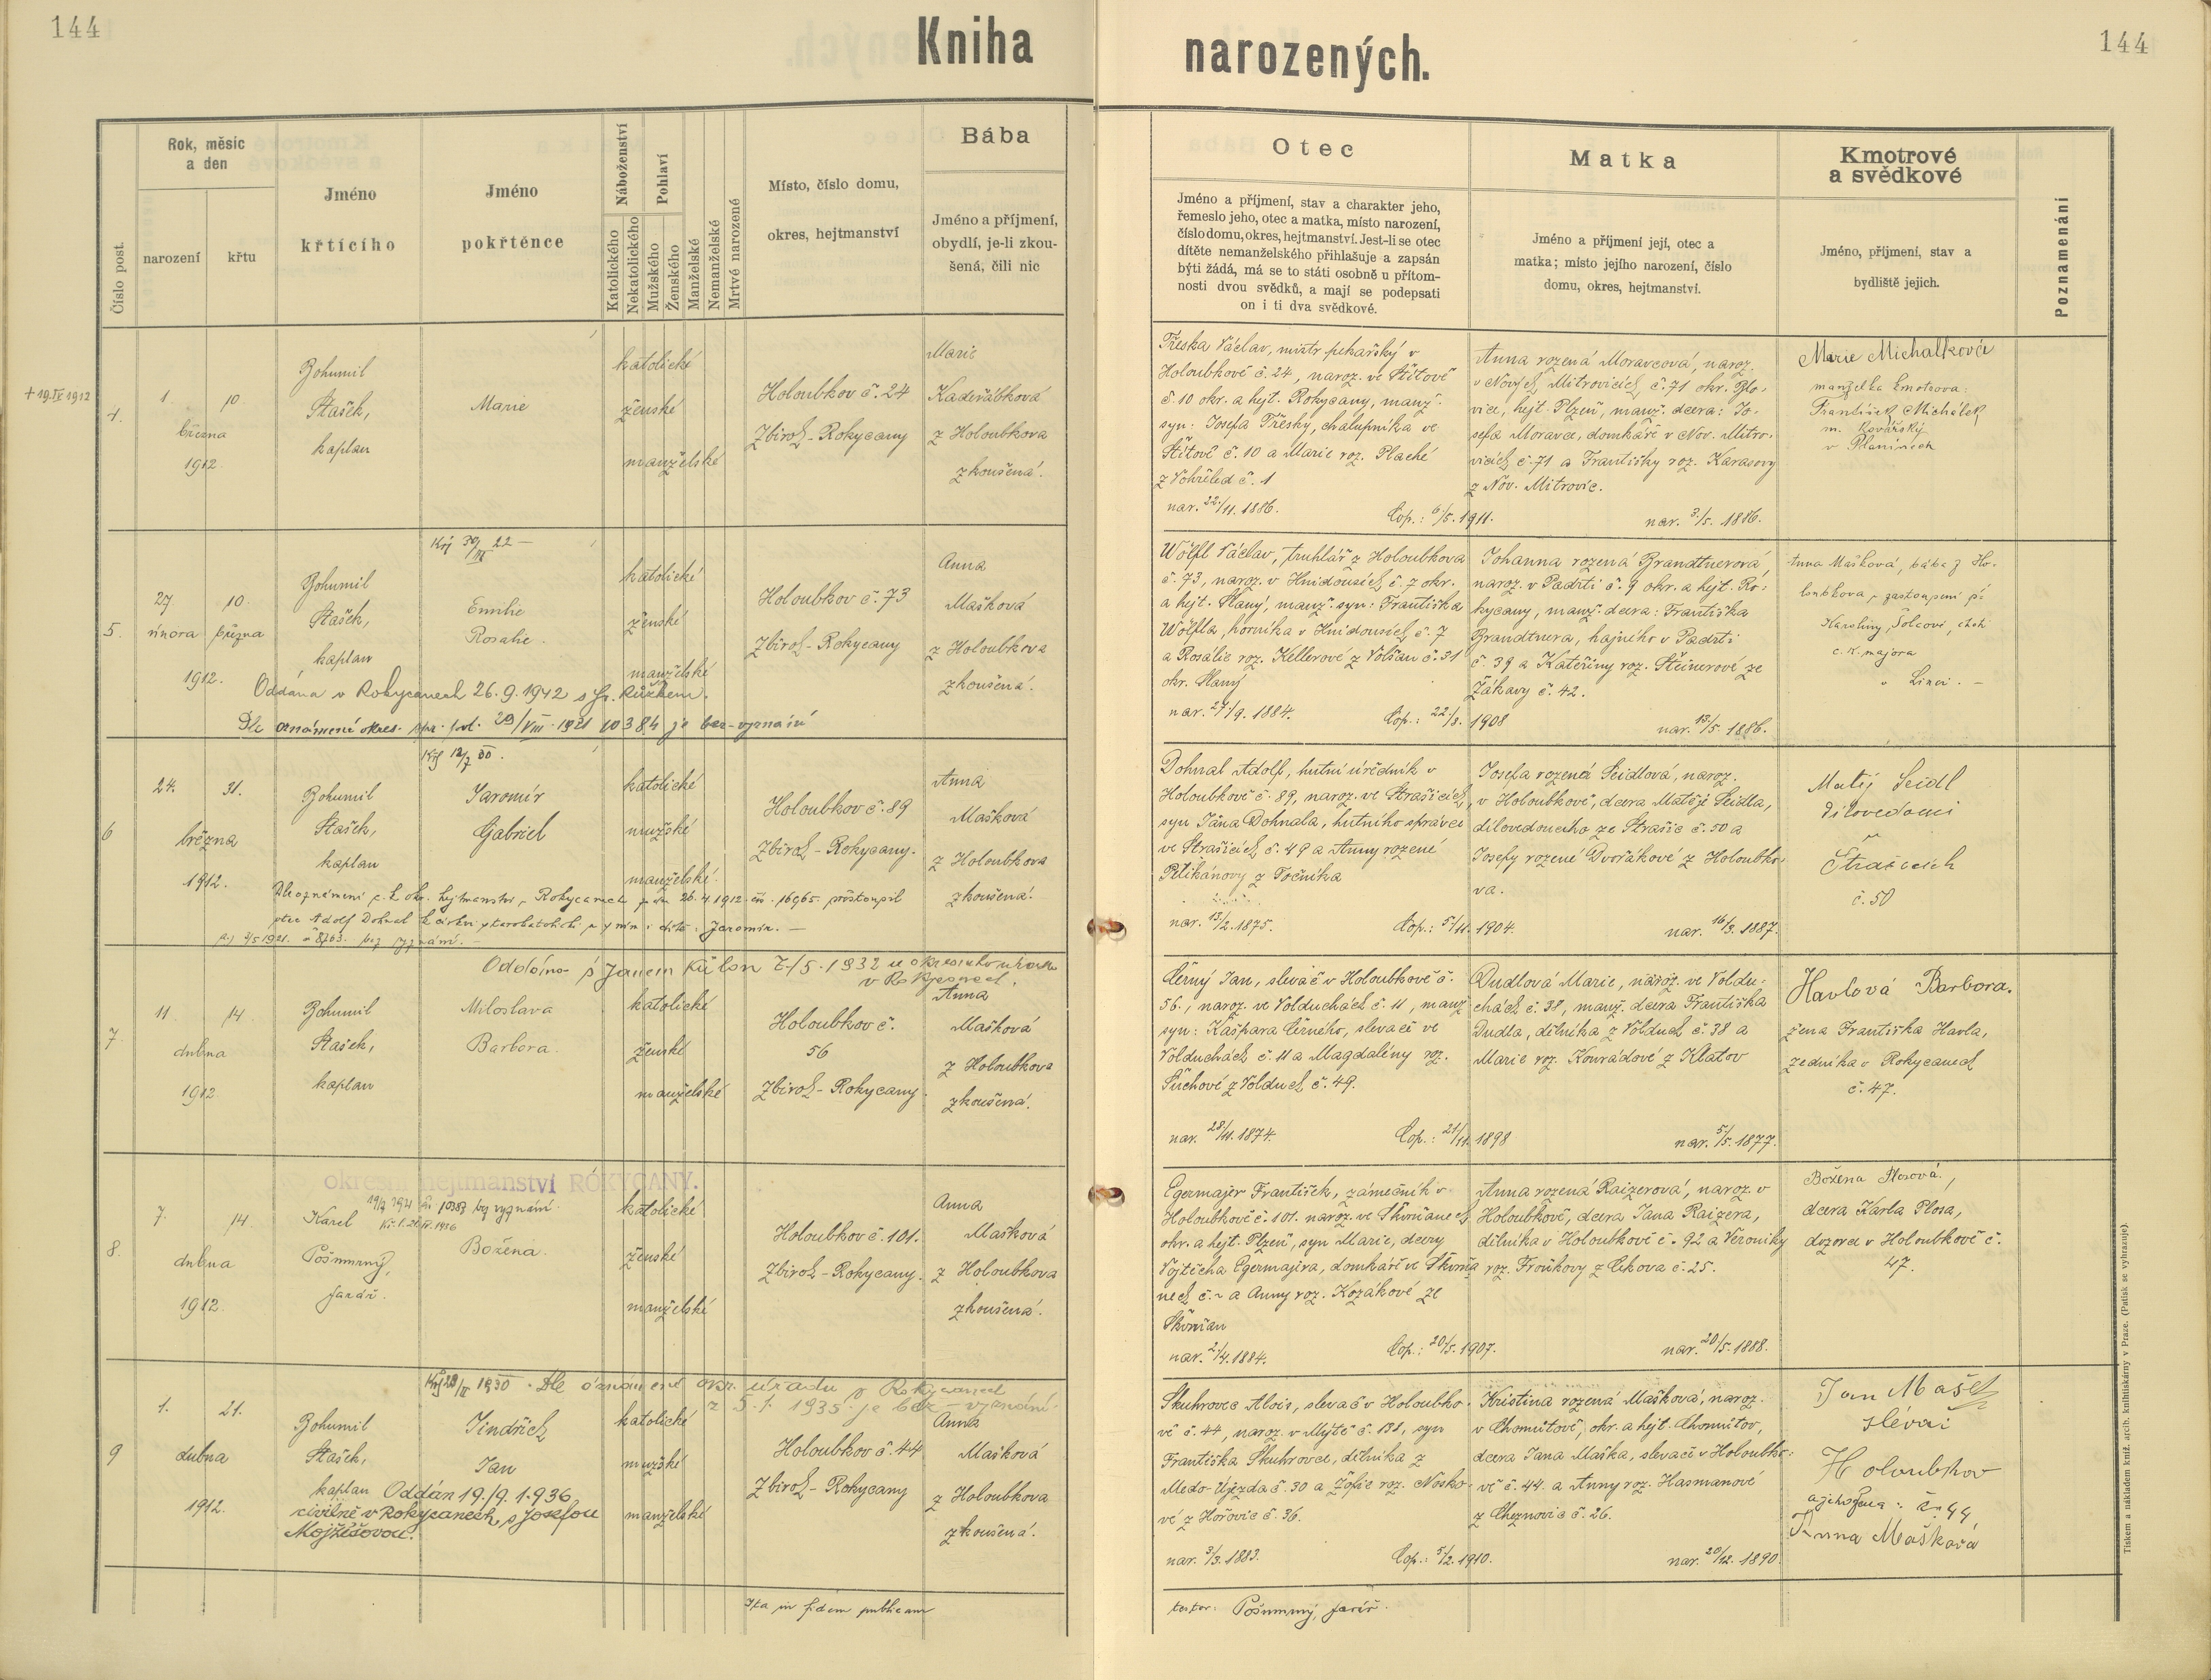 144
Kniha
narozených.
144
Číslo post.
Rok, měsíc
a den
narození
křtu
Jméno
křtícího
Jméno
pokřtěnce
Náboženství
Katolického
Nekatolického
Pohlaví
Mužského
Ženského
Manželské
Nemanželské
Mrtvě narozené
Místo, číslo domu,
okres, hejtmanství
Bába
Jméno a příjmení,
obydlí, je-li zkou-
šená, čili nic
Otec
Jméno a příjmení, stav a charakter jeho,
řemeslo jeho, otec a matka, místo narození,
číslo domu, okres, hejtmanství. Jest-li se otec
dítěte nemanželského přihlašuje a zapsán
býti žádá, má se to státi osobně u přítom-
nosti dvou svědků, a mají se podepsati
on i ti dva svědkové.
Matka
Jméno a příjmení její, otec a
matka; místo jejího narození, číslo
domu, okres, hejtmanství.
Kmotrové
a svědkové
Jméno, příjmení, stav a
bydliště jejich.
Poznamenání
+ 19.IV.1912
4.
1. 10.
března
1912.
Bohumil
Stašek,
kaplan
Marie
katolické
ženské
manželské
Holoubkov č. 24
Zbiroh - Rokycany
Marie
Kadeřábková
z Holoubkova
zkoušená.
Třeska Václav, mistr pekařský v
Holoubkově č. 24, naroz. ve Štítově
č. 10 okr. a hejt. Rokycany, manž.
syn: Josefa Třesky, chalupníka ve
Štítově č. 10 a Marie roz. Plaché
z Vohřeled č. 1
nar. 22/11. 1886.
Cop.: 6/5. 1911.
Anna rozená Moravcová, naroz.
v Nových Mitrovicích č. 71 okr. Blo-
vice, hejt. Plzeň, manž. dcera: Jo-
sefa Moravce, domkáře v Nov. Mitro-
vicích č. 71 a Františky roz. Karasovy
z Nov. Mitrovic.
nar. 3./5. 1886.
Marie Michalková
manželka kmotrova:
František Michálek
m. kovářský
v Planinách
5.
27. 10.
února března
1912.
Bohumil
Stašek,
kaplan
Emilie
Rosalie
katolické
ženské
manželské
Holoubkov č. 73
Zbiroh - Rokycany
Anna
Mašková
z Holoubkova
zkoušená.
Oddána v Rokycanech 26.9.1942 s Fr. Růžkem.
Dle oznámení okres. spr. pol. 29/VIII. 1921 10384 je bez-vyznání
Wölfl Václav, truhlář z Holoubkova
č. 73, naroz. v Hnidousích č. 7 okr.
a hejt. Slaný, manž. syn: Františka
Wölfla, horníka v Hnidousích č. 7
a Rosálie roz. Kellerové z Volšan č. 31
okr. Slaný
nar. 27./9. 1884.
Cop.: 22/8. 1908
Johanna rozená Brandtnerová,
naroz. v Padrti č. 9 okr. a hejt. Ro-
kycany, manž. dcera: Františka
Brandtnera, hajného v Padrti
č. 39 a Kateřiny roz. Steinerové ze
Žákavy č. 42.
nar. 13/5. 1886.
Anna Mašková, bába z Ho-
loubkova v zastoupení pí.
Karoliny Šolcové, choti
c. k. majora
v Linci. -
6
24. 31.
března
1912.
Bohumil
Stašek,
kaplan
Jaromír
Gabriel
katolické
mužské
manželské.
Holoubkov č. 89
Zbiroh - Rokycany.
Anna
Mašková
z Holoubkova
zkoušená.
Dle oznámení c. k. okr. hejtmanství v Rokycanech ze dne 26.4.1912 čís. 16965. přistoupil
otec Adolf Dohnal k církvi starokatolické a s ním i dítě: Jaromír. -
Dohnal Adolf, hutní úředník v
Holoubkově č. 89, naroz. ve Strašicích,
syn Jána Dohnala, hutního správce
ve Strašicích č. 49 a Anny rozené
Pelikánovy z Točníka
nar. 13/2. 1875.
Cop.: 5/11. 1904.
Josefa rozená Seidlová, naroz.
v Holoubkově, dcera Matěje Seidla,
dílovedoucího ze Strašic č. 50 a
Josefy rozené Dvořákové z Holoubko-
va.
nar. 16/3. 1887.
Matěj Seidl
dílovedoucí
v
Strašicích
č. 50
Oddána s Janem Külon 7./5. 1932 u okresního úřadu
v Rokycanech.
7.
11. 14.
dubna
1912
Bohumil
Stašek,
kaplan
Miloslava
Barbora
katolické
ženské
manželské
Holoubkov č.
56
Zbiroh - Rokycany
Anna
Mašková
z Holoubkova
zkoušená.
Černý Jan, slevač v Holoubkově č.
56., naroz. ve Volduchách č. 11, manž
syn: Kašpara Černého, slevače ve
Volduchách č. 11 a Magdalény roz.
Súchové z Volduch č. 49.
nar. 28/11. 1874.
Cop.: 21/11. 1898
Dudlová Marie, naroz. ve Voldu-
chách č. 38, manž. dcera Františka
Dudla, dělníka z Volduch č. 38 a
Marie roz. Konrádové z Klatov
nar. 5/5. 1877.
Havlová Barbora.
žena Františka Havla,
zedníka v Rokycanech
č. 47.
okresní hejtmanství ROKYCANY.
8.
7. 14.
dubna
1912.
Karel
Pošumný,
farář.
Božena
katolické
ženské
manželské
Holoubkov č. 101.
Zbiroh - Rokycany.
Anna
Mašková
z Holoubkova
zkoušená.
Egermajer František, zámečník v
Holoubkově č. 101. naroz. ve Skvrňanech
okr. a hejt. Plzeň, syn Marie, dcery
Vojtěcha Egermajera, domkáře ve Skvrňa
nech č. ~ a Anny roz. Kozákové ze
Skvrňan
nar. 2/4. 1884.
Cop.: 20/5. 1907.
Anna rozená Raizerová, naroz. v
Holoubkově, dcera Jana Raizera,
dělníka v Holoubkově č. 92 a Veroniky
roz. Froňkovy z Cekova č. 25.
nar. 20/5. 1888.
Božena Plosová,
dcera Karla Plosa,
dozorce v Holoubkově č.
47.
Dle oznámení okr. úřadu v Rokycanech
z 5.1. 1935 je bez-vyznání.
9
1. 21.
dubna
1912.
Bohumil
Stašek,
kaplan
Jindřich
Jan
katolické
mužské
manželské
Holoubkov č. 44
Zbiroh - Rokycany
Anna
Mašková
z Holoubkova
zkoušená.
Oddán 19./9. 1.936
civilně v Rokycanech, s Josefou
Mojžíšovou.
Skuhrovec Alois, slevač v Holoubko-
vě č. 44, naroz. v Mýtě č. 131, syn
Františka Skuhrovce, dělníka z
Medo-Újezda č. 30 a Žofie roz. Nosko-
vé z Hořovic č. 36.
nar. 3/3. 1883.
Cop.: 5/2. 1910.
Kristina rozená Mašková, naroz.
v Chomútově, okr. a hejt. Chomútov,
dcera Jana Maška, slevače v Holoubko-
vě č. 44. a Anny roz. Hasmanové
z Cheznovic č. 26.
nar. 20/12. 1890.
Jan Mašek
slévač
Holoubkov
a jeho žena: č. 44
Anna Mašková
Ita in fidem publicam
testor: Pošumný, farář.
Tiskem a nákladem kníž. arcib. knihtiskárny v Praze. (Patisk se vyhrazuje).